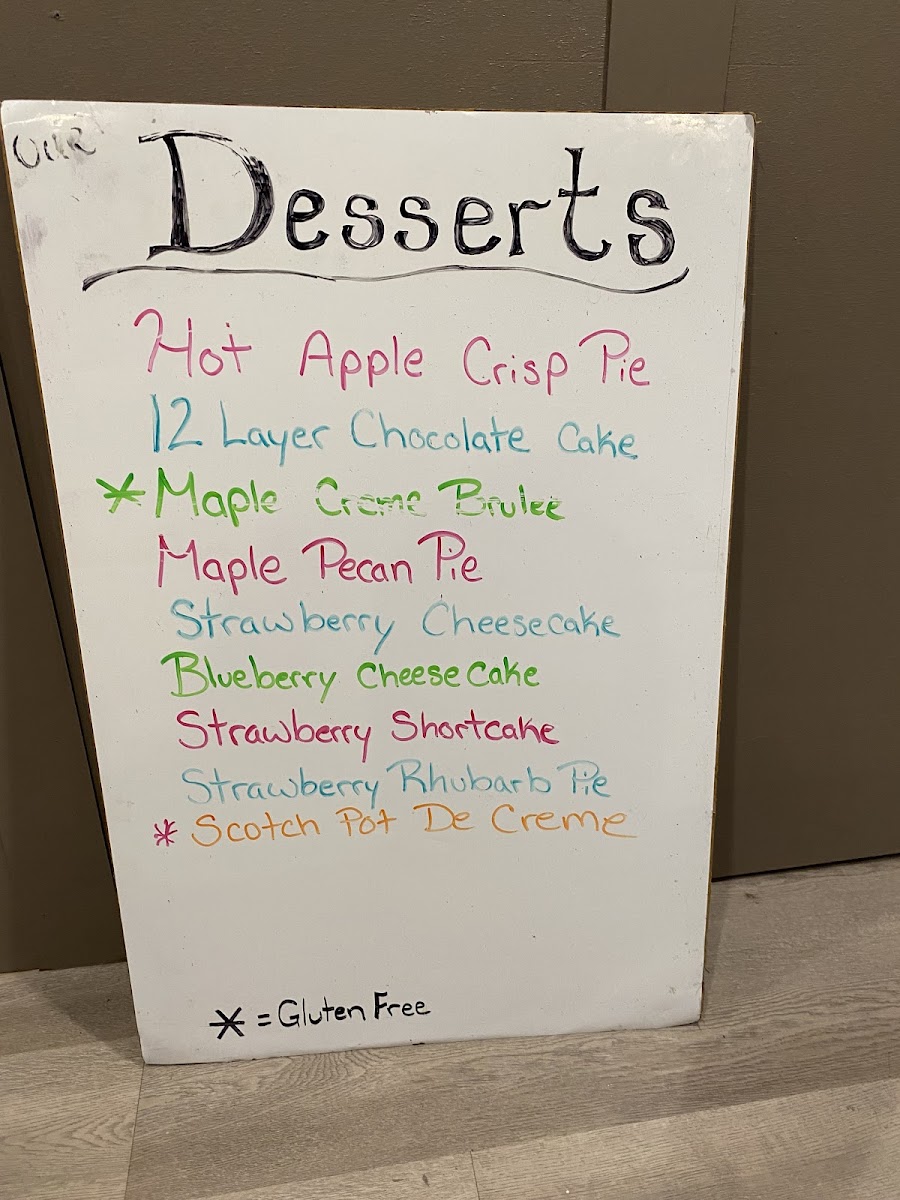 OUR
Desserts
Hot Apple Crisp Pie
12 Layer Chocolate Cake
* Maple Creme Brulee
Maple Pecan Pie
Strawberry Cheesecake
Blueberry Cheese Cake
Strawberry Shortcake
Strawberry Rhubarb Pie
* Scotch Pot De Creme
* = Gluten Free